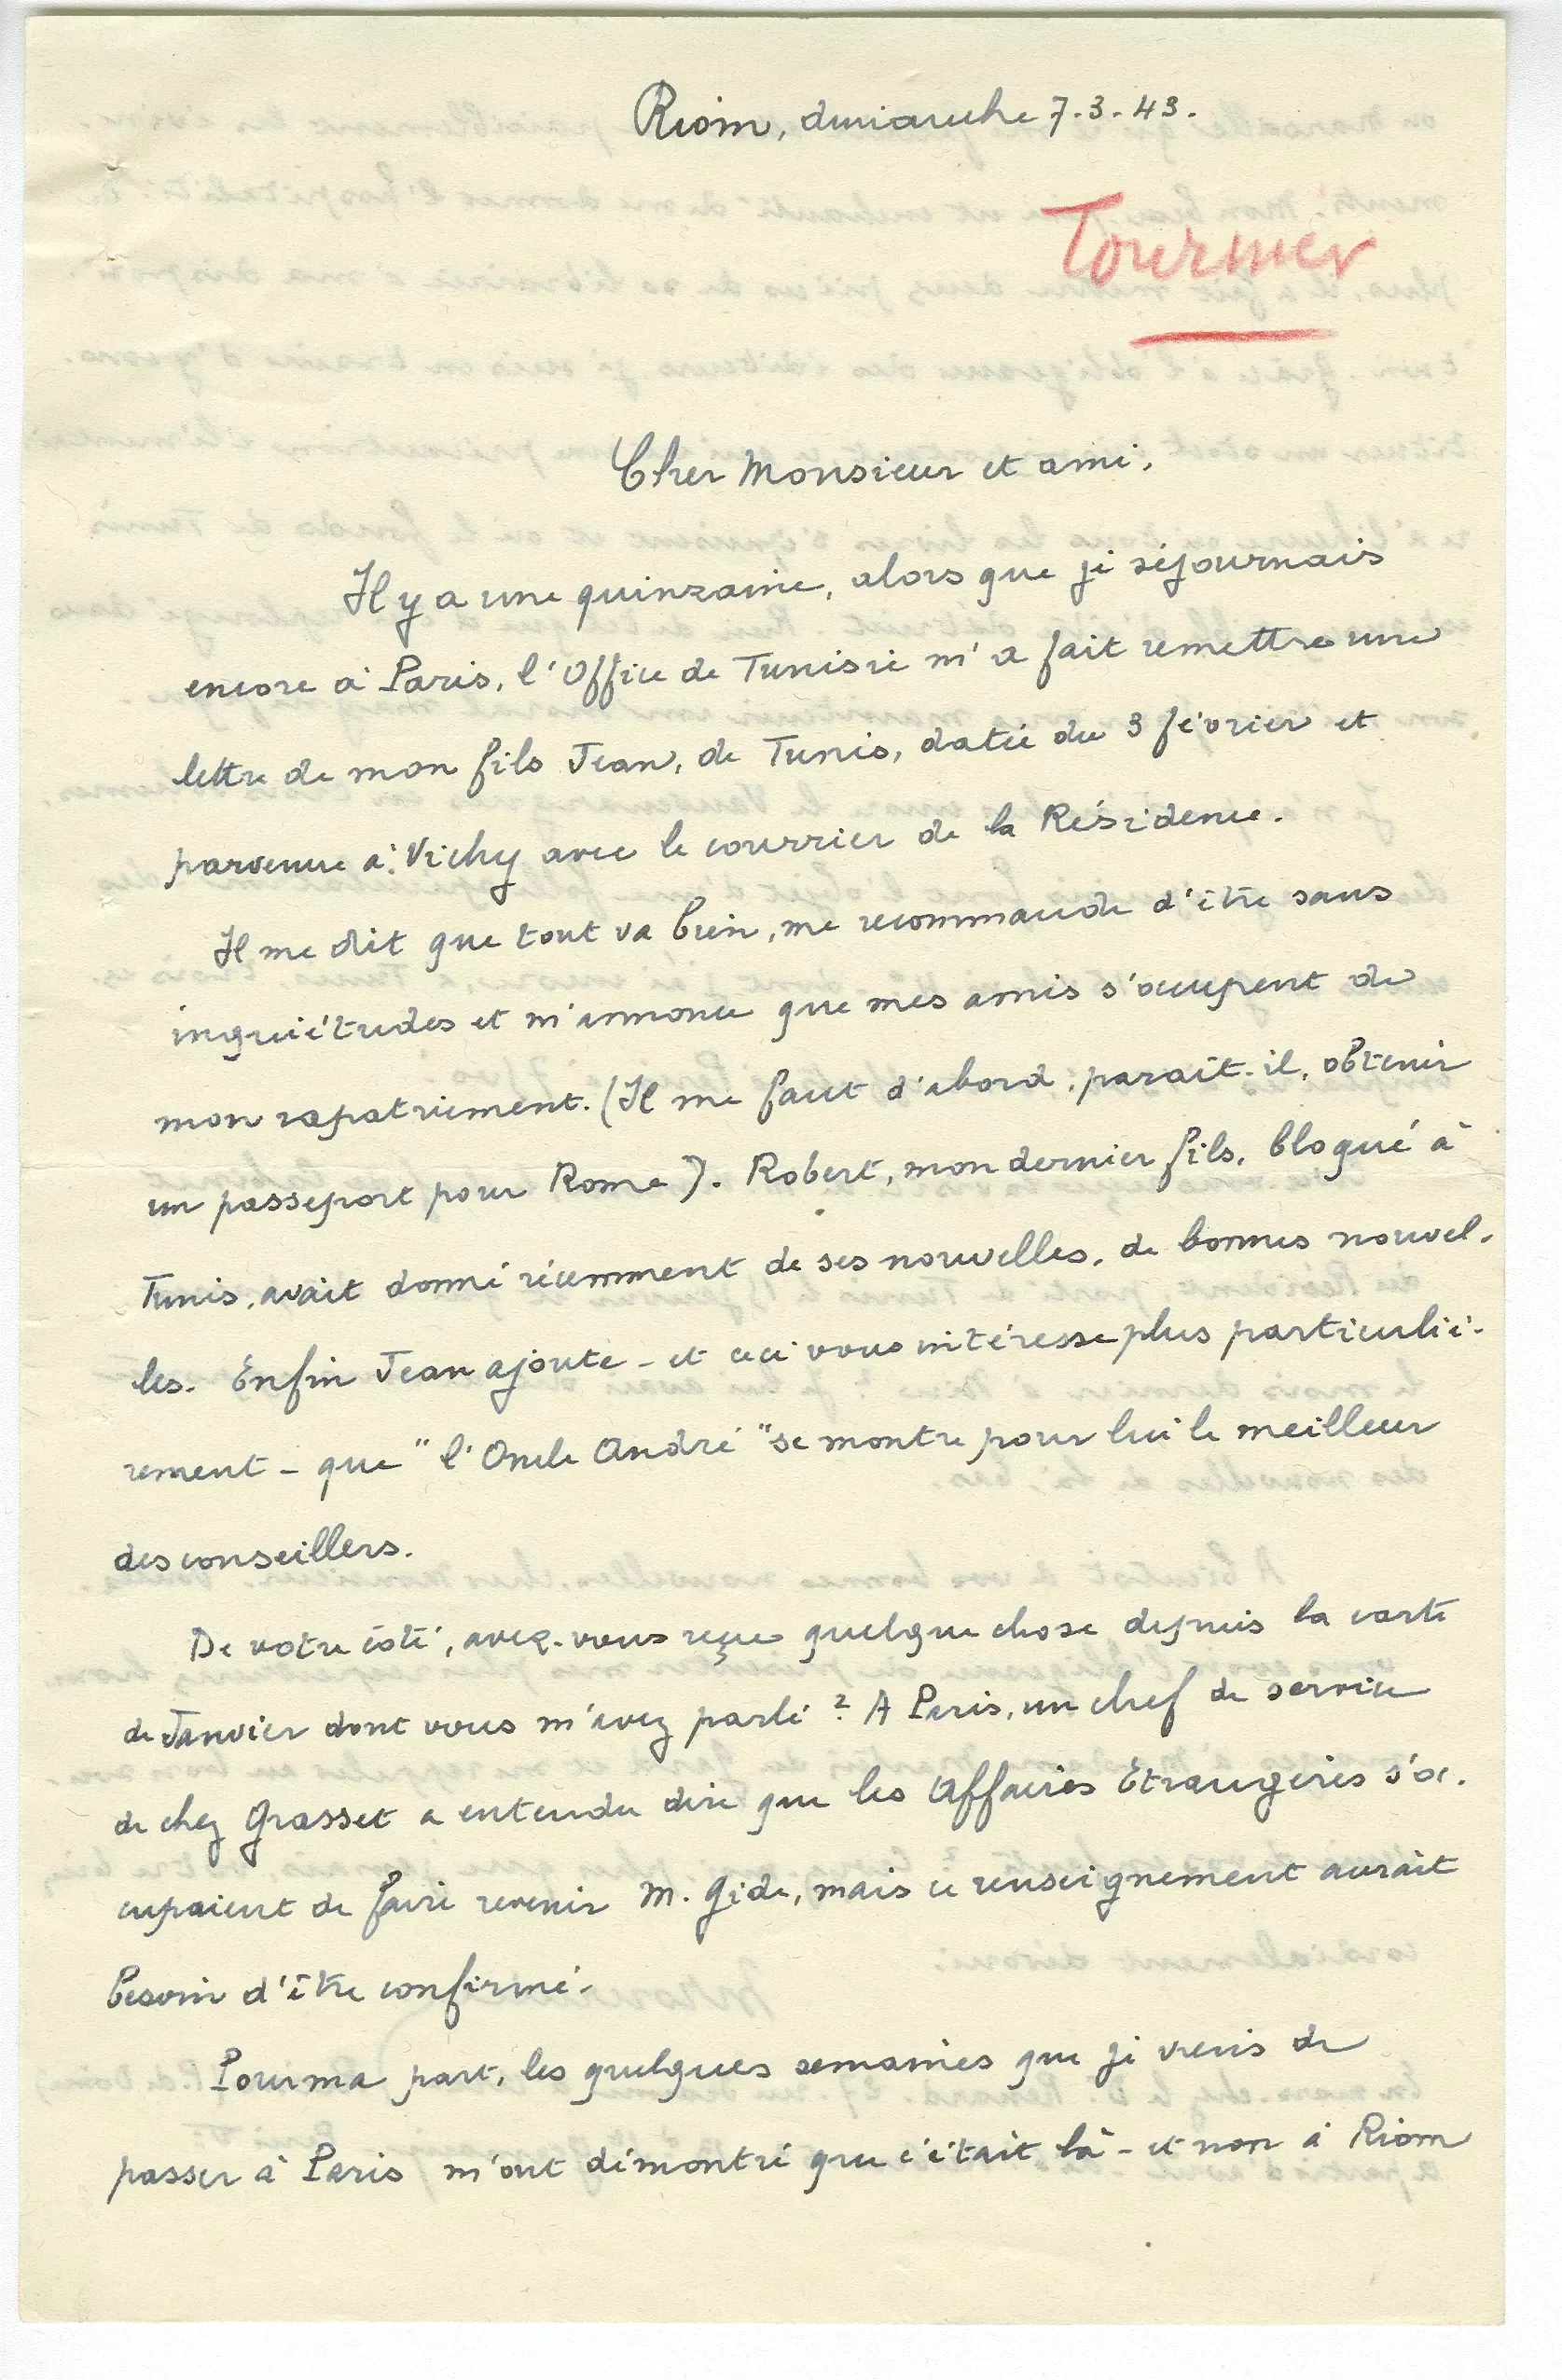 Riom, dimanche 7.3.43.
Tournier
Cher Monsieur et ami,
Il y a une quinzaine, alors que je séjournais
encore à Paris, l'Office de Tunisie m'a fait remettre une
lettre de mon fils Jean, de Tunis, datée du 3 février et
parvenue à Vichy avec le courrier de la Résidence.
Il me dit que tout va bien, me recommande d'être sans
inquiétudes et m'annonce que mes amis s'occupent de
mon rapatriement. (Il me faut d'abord, paraît-il, obtenir
un passeport pour Rome). Robert, mon dernier fils, bloqué à
Tunis, avait donné récemment de ses nouvelles, de bonnes nouvel-
les. Enfin Jean ajoute - et ceci vous intéresse plus particuliè-
rement - que "l'Oncle André" se montre pour lui le meilleur
des conseillers.
De votre côté, avez-vous reçu quelque chose depuis la carte
de Janvier dont vous m'avez parlé ? A Paris, un chef de service
de chez Grasset a entendu dire que les Affaires Etrangères s'oc-
cupaient de faire revenir M. Gide, mais ce renseignement aurait
besoin d'être confirmé.
Pour ma part, les quelques semaines que je viens de
passer à Paris m'ont démontré que c'était là - et non à Riom